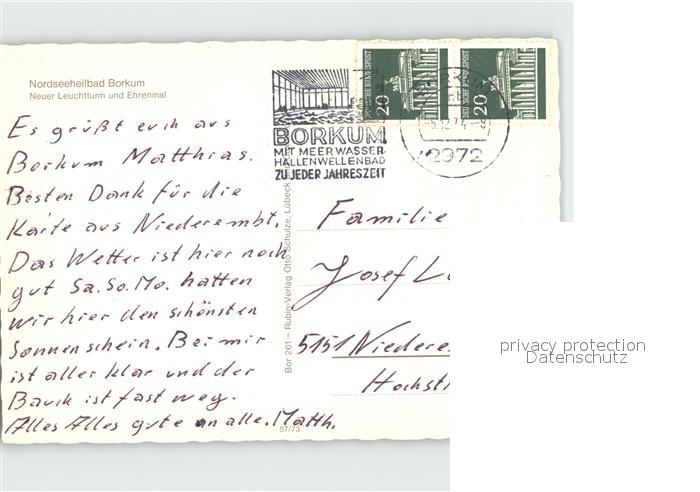 Nordseeheilbad Borkum
Neuer Leuchtturm und Ehrenmal
Es grüßt euch aus
Borkum Matthias.
Besten Dank für die
Karte aus Niederembt.
Das Wetter ist hier noch
gut Sa. So. Mo. hatten
wir hier den schönsten
Sonnenschein. Bei mir
ist aller klar und der
Bauch ist fast weg.
Alles Alles gute an alle. Matth.
57/73
Bor 261 – Rubin-Verlag Otto Schulze, Lübeck
BORKUM
MIT MEERWASSER-
HALLENWELLENBAD
ZU JEDER JAHRESZEIT
20
20
2972
Familie
Josef
5151 Niedere
Hochst
privacy protection
Datenschutz